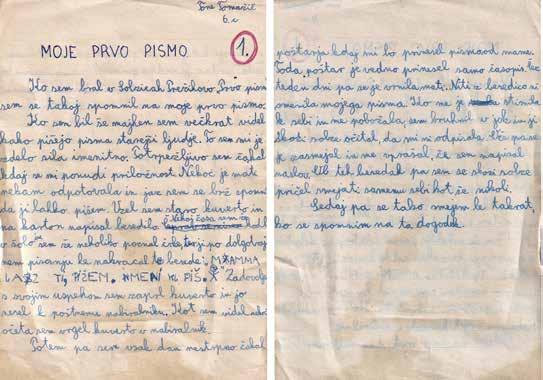 Tone Tomažič
6. c
1.
MOJE PRVO PISMO
Ko sem bral v Solzicah Prežihovo Prvo pismo
sem se takoj spomnil na moje prvo pismo.
Ko sem bil še majhen sem večkrat videl
kako pišejo pisma starejši ljudje. To sem mi je
zdelo sila imenitno. Potrpežljivo sem čakal
kdaj se mi ponudi priložnost. Nekoč je mati
nekam odpotovala in jaz sem se brž spomnil
da ji lahko pišem. Vzel sem staro kuverto in
na karton napisal besedilo. Nekoj časa sem
v šolo sem že nekoliko poznal črke, torej po dolgotrajnem
pisanju le nakracal te besede: MAMMA
TI PIŠEM. MENI PIŠ. Zadovoljen
s svojim uspehom sem zaprl kuverto in jo
nesel k poštnemu nabiralniku. Kot sem videl
očeta sem vrgel kuverto v nabiralnik.
Potem pa sem vsak dan nestrpno čakal
poštarja kdaj mi bo prinesel pismo od mame.
Toda, poštar je vedno prinesel samo časopis. Čez
teden dni pa se je vrnila mati. Niti z besedico ni
omenila mojega pisma. Ko me je stisnila
k sebi in me pobožala, sem bruhnil v jok in ji
skozi solze očital, da mi ni odpisala. Oče pa se
je zasmejal in me vprašal, če sem napisal
naslov. Ob teh besedah pa sem se skozi solze
pričel smejati samemu sebi kot še nikoli.
Sedaj pa se tako smejem le takrat,
ko se spomnim na ta dogodek.